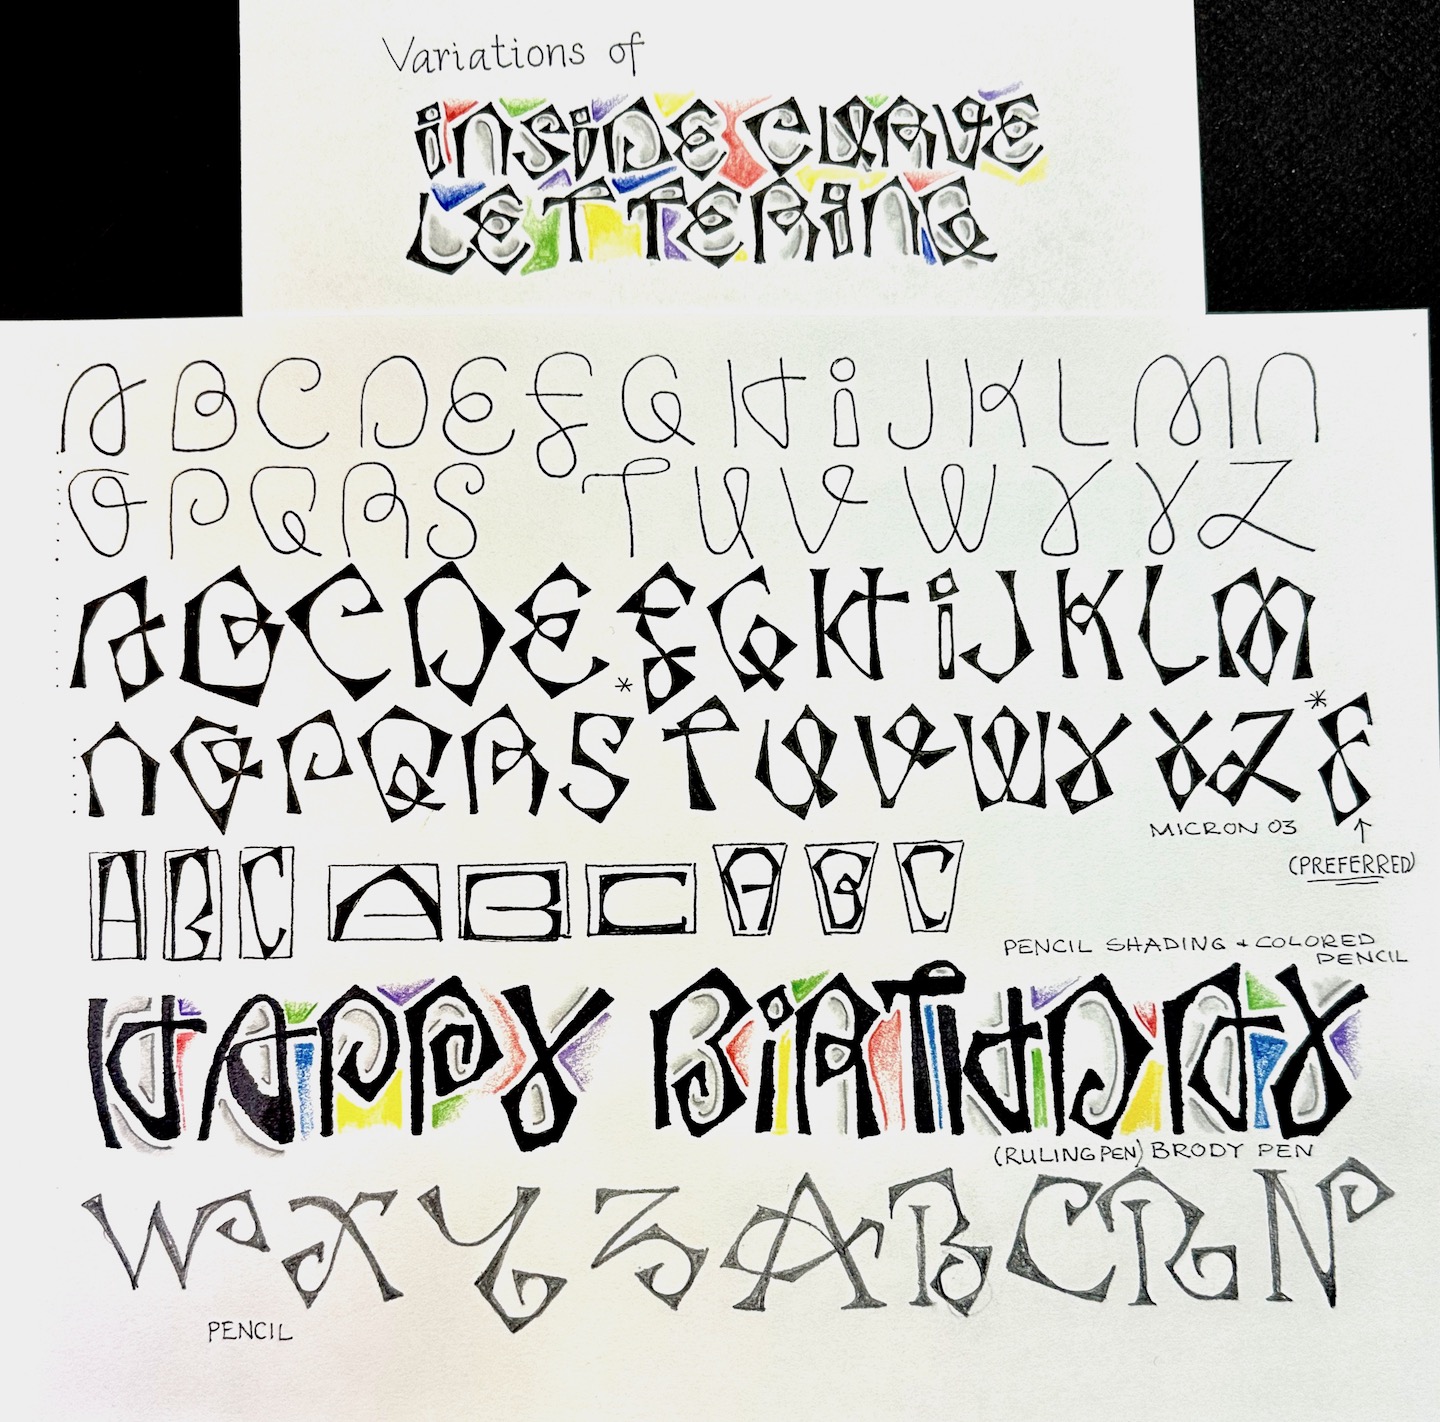 Variations of
INSiDE CURVE
LETTERiNG
A B C D E F G H i J K L M N
O P Q R S T U V W X Y Z
A B C D E F G H i J K L M
N O P Q R S T U V W X Y Z * F
*
MICRON 03
↑
(PREFERRED)
A B C A B C A B C
PENCIL SHADING + COLORED
PENCIL
HAPPY BiRTHDAY
(RULING PEN) BRODY PEN
W X Y Z A B C R N
PENCIL